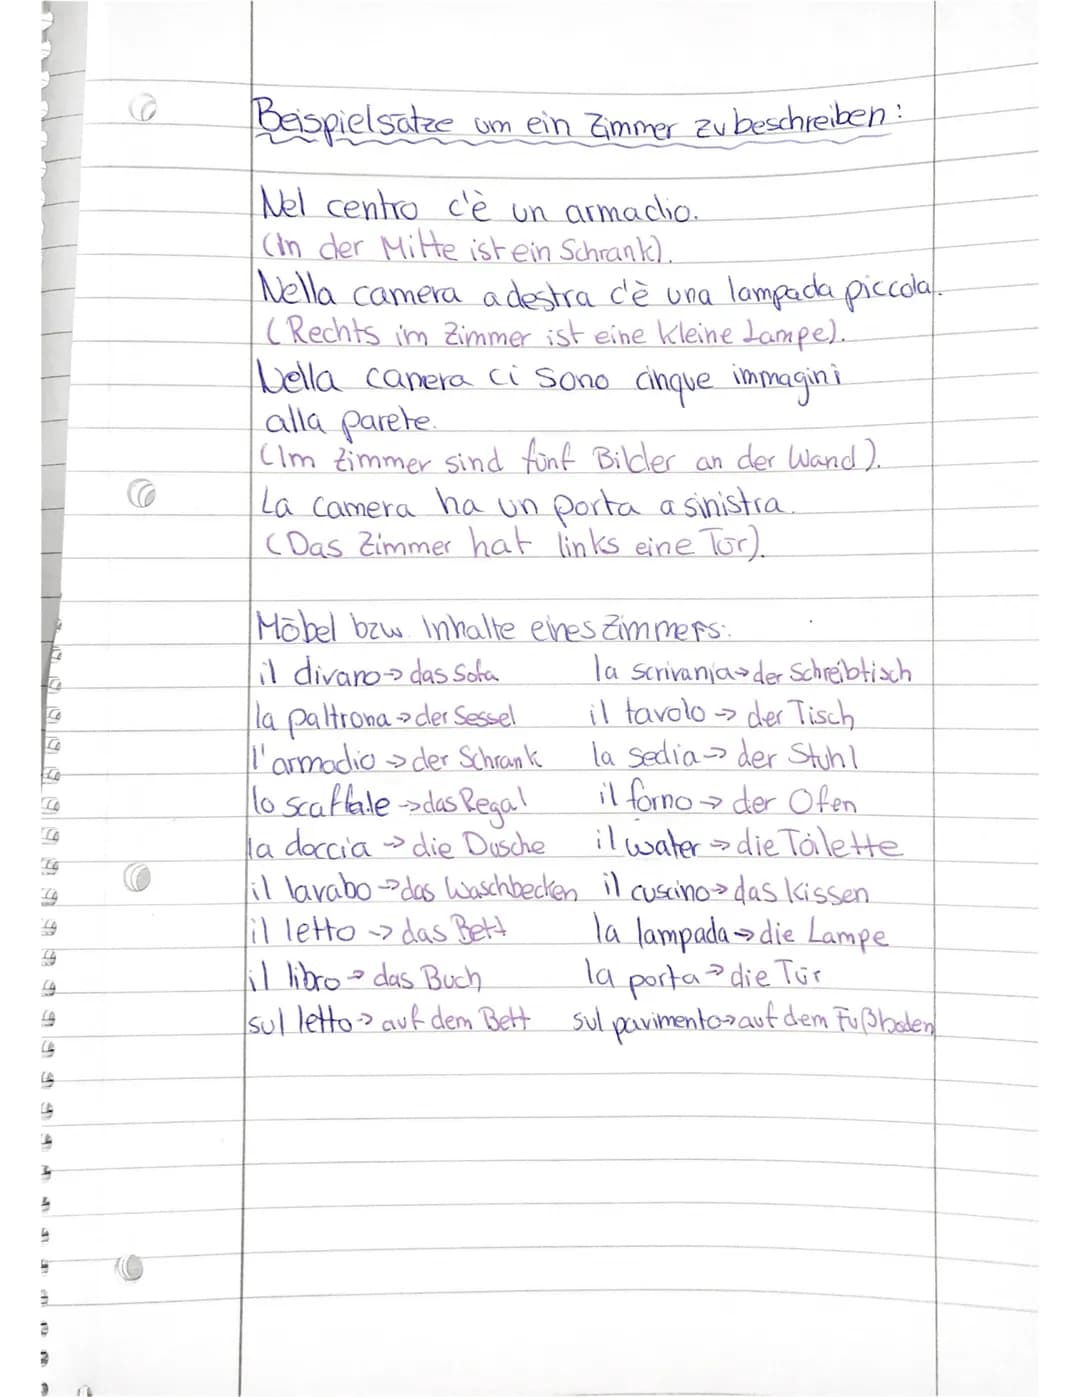 Beispielsätze um ein Zimmer zu beschreiben:
Nel centro c'è un armadio.
(In der Mitte ist ein Schrank).
Nella camera a destra c'è una lampada piccola.
(Rechts im Zimmer ist eine kleine Lampe).
Nella camera ci sono cinque immagini
alla parete.
(Im Zimmer sind fünf Bilder an der Wand).
La camera ha un porta a sinistra.
(Das Zimmer hat links eine Tür).
Möbel bzw. Inhalte eines Zimmers:
il divano -> das Sofa la scrivania -> der Schreibtisch
la paltrona -> der Sessel il tavolo -> der Tisch
l'armadio -> der Schrank la sedia -> der Stuhl
lo scaffale -> das Regal il forno -> der Ofen
la doccia -> die Dusche il water -> die Toilette
il lavabo -> das Waschbecken il cuscino -> das Kissen
il letto -> das Bett la lampada -> die Lampe
il libro -> das Buch la porta -> die Tür
sul letto -> auf dem Bett sul pavimento -> auf dem Fußboden